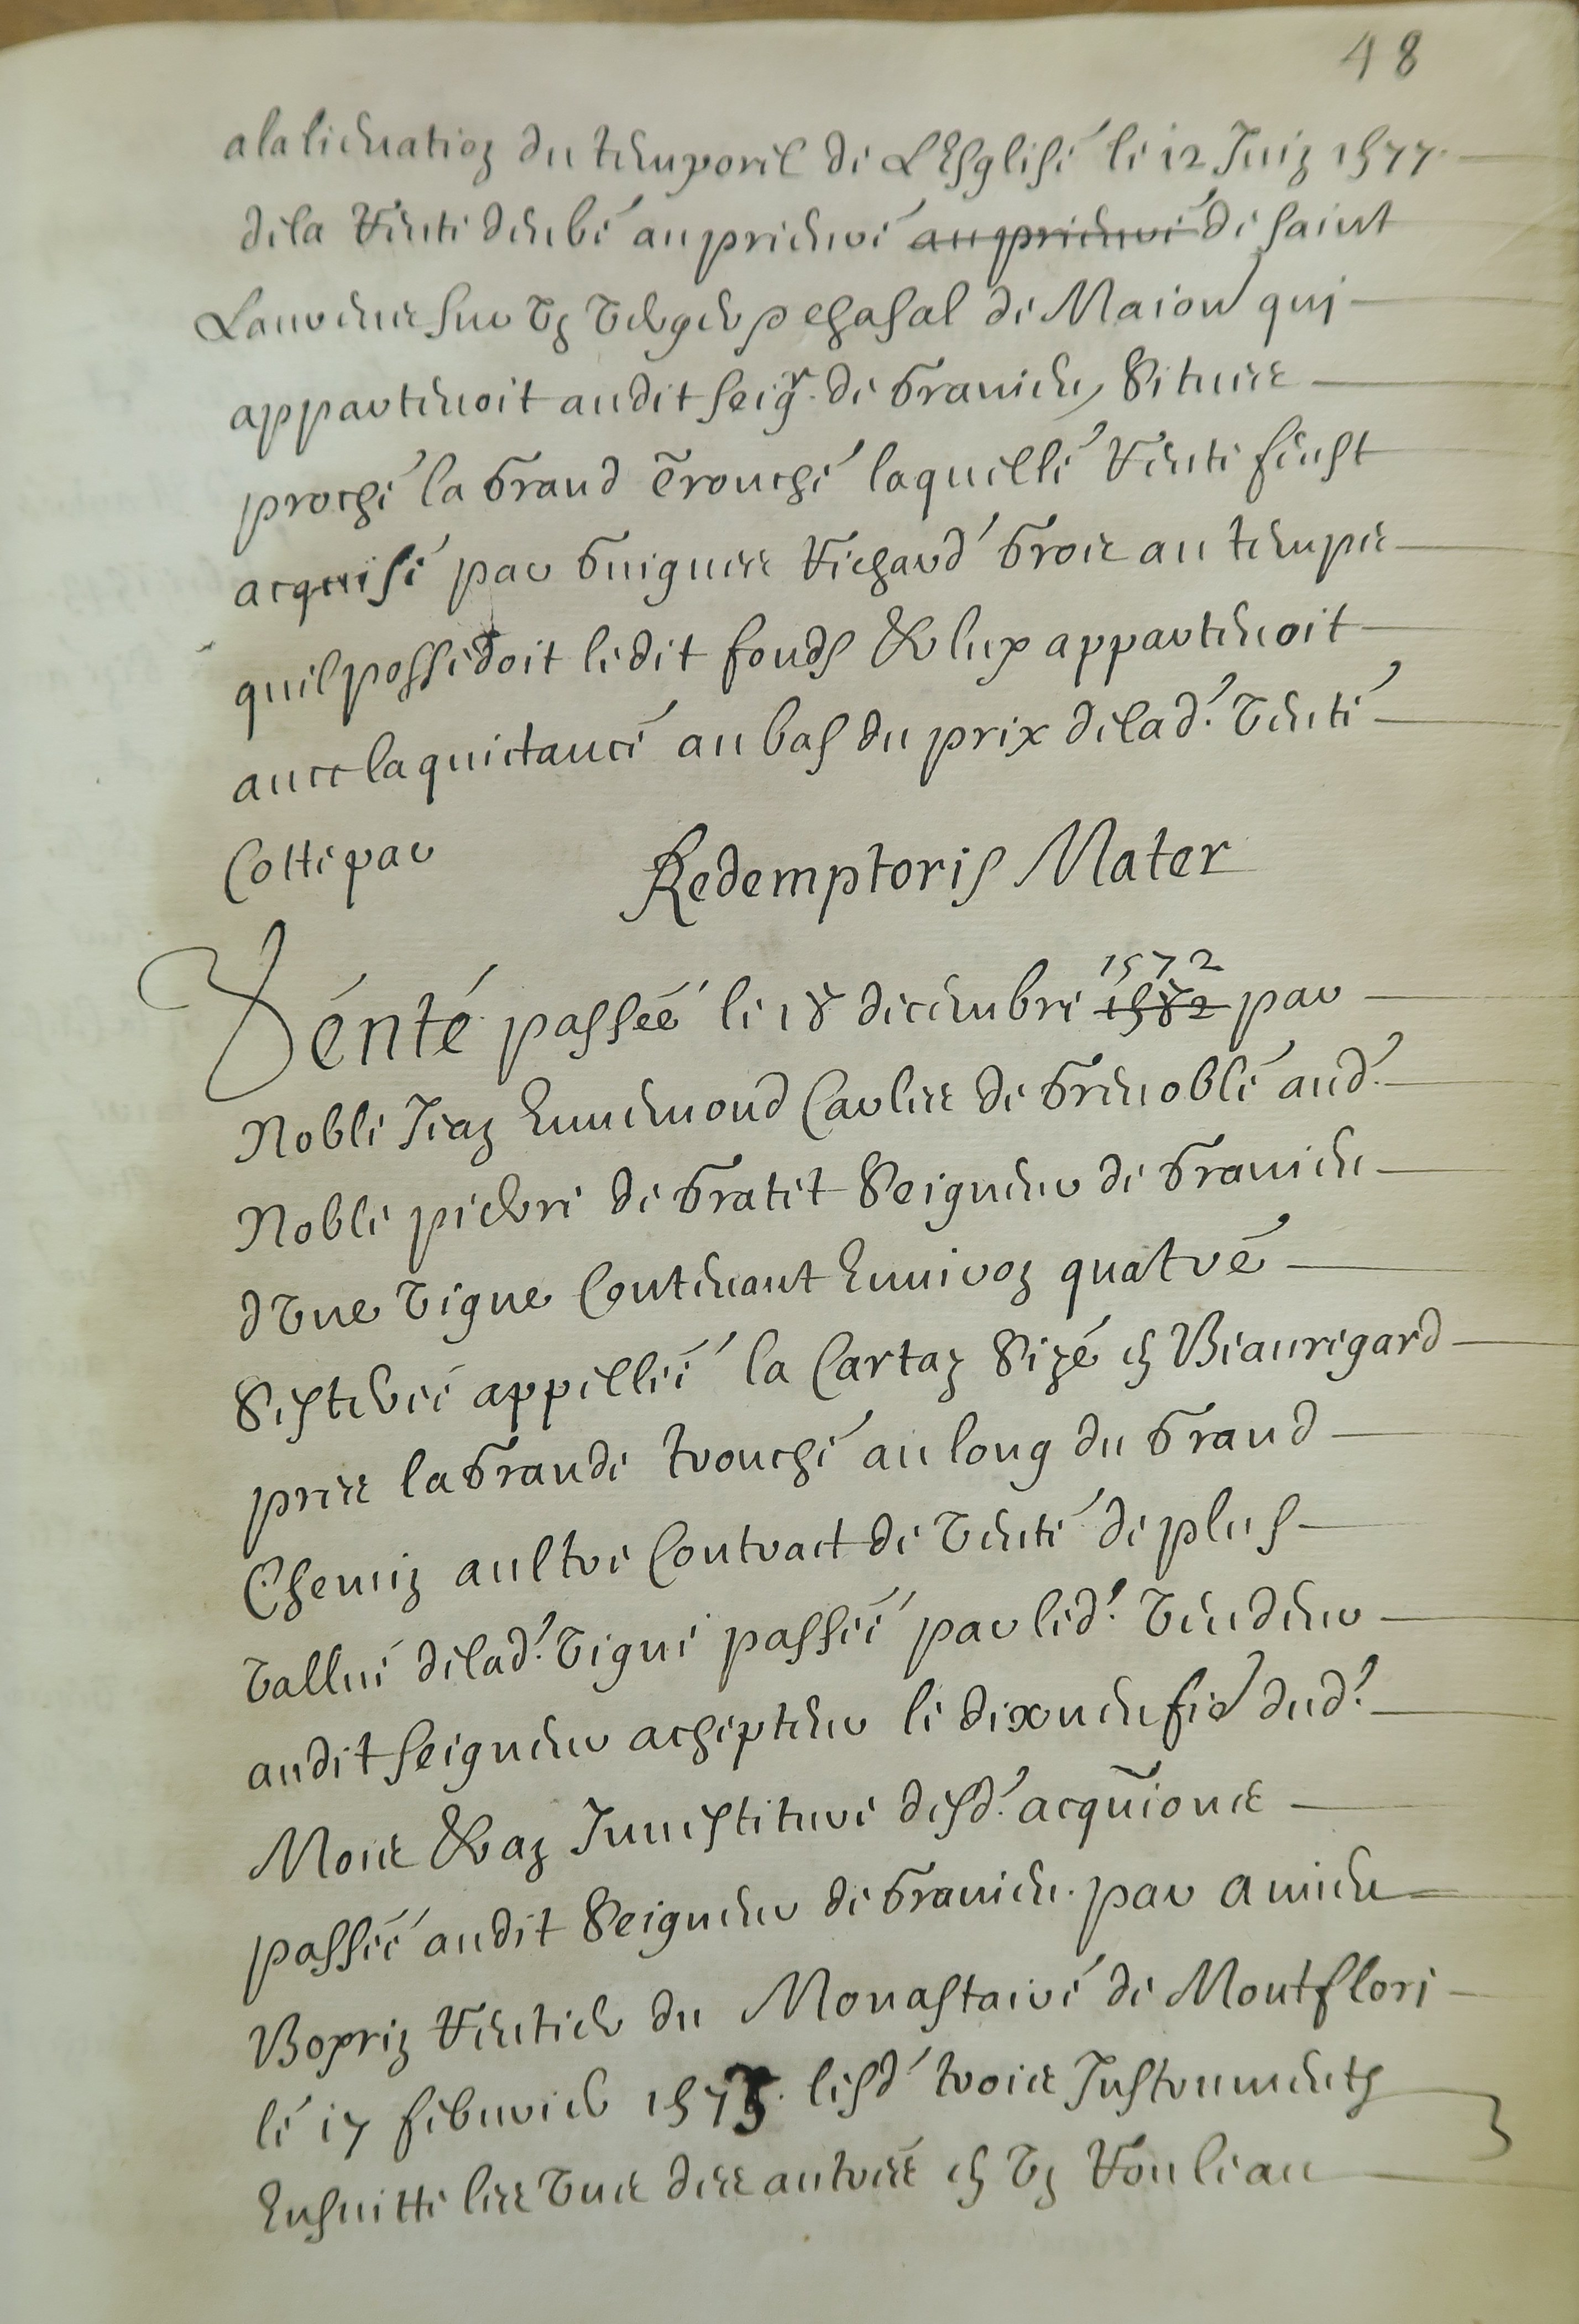 48
alalienation du temporel de LEsglise le 12 Juin 1577
dela Rente deube au prieuré au prieuré de saint
Laurens sur Un Verger & chasal de Maison qui
appartenoit audit seigr. de Granieu, Situés
proche la Grand Tronche laquelle Rente feust
acquise par Guigues Richard Gros au temps
quil possedoit ledit fonds & luy appartenoit
auec laquictance au bas du prix delad. Vente
Cotté par Redemptoris Mater
Vente passée le 18 decembre 1582 1572 par
Noble Jean Ennemond Carles de Grenoble aud.
Noble pierre de Gratet Seigneur de Granieu
dVne Vigne Contenant Enuiron quatre
Sesterées appellée la Cartan Size en Beauregard
pres la Grande tronche au long du Grand
Chemin aultre Contract de Vente de plus
Vallue delad. Vigne passée par led. Vendeur
audit seigneur achepteur le dixneufie dud.
Mois & an Inuestiture desd. acquions
passée audit Seigneur de Granieu par Amieu
Boprin Rentier du Monastaire de Montflori
le 17 febvrier 1575. lesd. trois Instruments
Ensuitte les Vns des autres en Un Rouleau